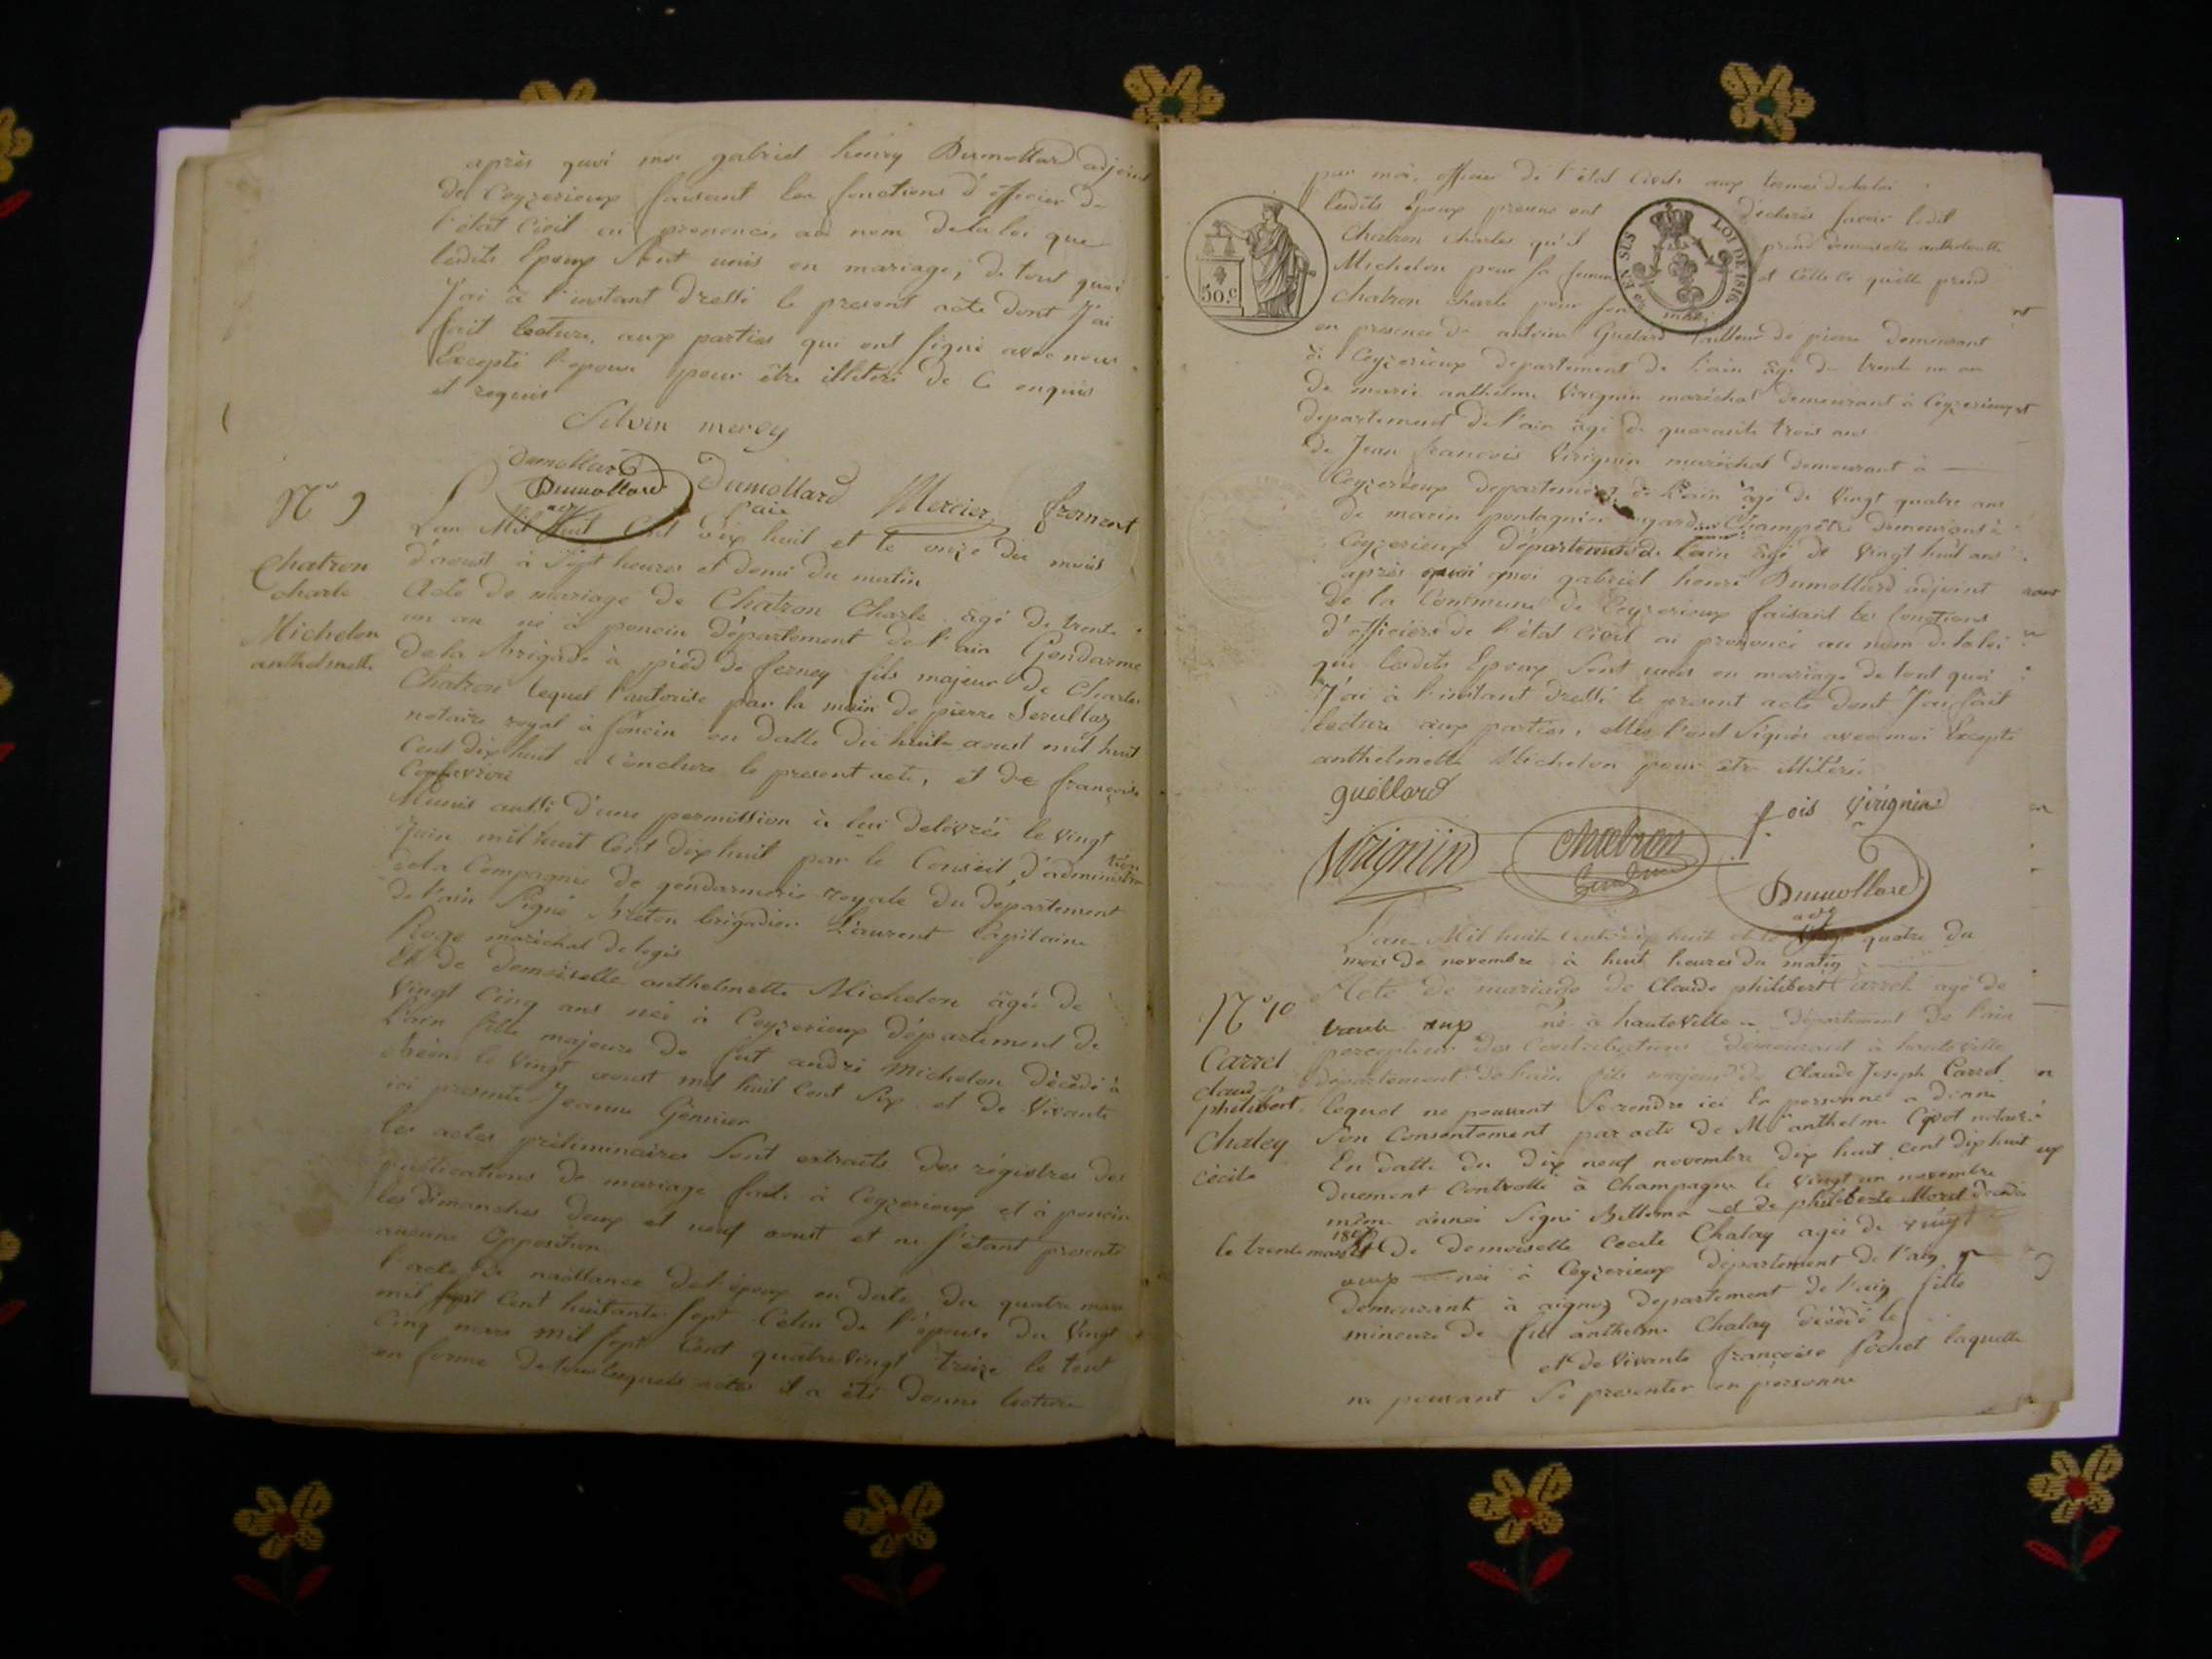 après quoi moi gabriel henry Dumollard adjoint
de Ceyzerieux faisant les fonctions d'officier de
l'état Civil ai prononcé, au nom de la loi que
lesdits Epoux Sont unis en mariage; de tout quoi
J'ai à l'instant dressé le present acte dont J'ai
fait lecture, aux parties qui ont signé avec nous
Excepté l'epouse pour être illiteré de ce enquis
et requis
Silvin mercy
Dumollard
Dumollard Dumollard Mercier froment
adj l'ainé
N° 9
L'an Mil huit Cent dix huit et le onze du mois
d'aoust à Sept heures et demi du matin
Chatron
charle
Michelon
anthelmette
Acte de mariage de Chatron Charle âgé de trente
un an né à poncin Département de l'ain Gendarme
De la brigade à pied de ferney fils majeur de Charles
Chatron lequel l'autorise par la main de pierre Serullaz
notaire royal à poncin en datte du huit aoust mil huit
Cent dix huit à Conclure le present acte, et de françoise
Munis aussi d'une permission à lui delivrée le vingt
Juin mil huit Cent dix huit par le Conseil d'administra
tion
de la Compagnie de gendarmerie royale du département
de l'ain Signé Breton brigadier Laurent Capitaine
maréchal de logis
Et de Demoiselle anthelmette Michelon âgée de
Vingt Cinq ans née à Ceyzerieux département de
l'ain fille majeure de feut andré Michelon décédé à
le vingt aoust mil huit Cent Six et de Vivante
ici presente Jeanne Genvier
les actes préliminaires Sont extraits des régistres des
publications de mariage faite à Ceyzerieux et à poncin
les dimanches deux et neuf aoust et ne s'étant presenté
aucune Opposition
l'acte de naissance de l'époux en date du quatre mars
mil sept Cent huitante sept Celui de l'épouse du Vingt
Cinq mars mil sept Cent quatrevingt treize le tout
en forme de tous lesquels actes il a été donné lecture
par moi, officier de l'état Civil aux termes de la loi
lesdits Epoux presens ont déclarés savoir ledit
Chatron Charles qu'il prend demoiselle anthelmette
Michelon pour sa femme et Celle Ce qu'elle prend
Chatron charle pour son mari
50.c
EN SUS LOI DE 1816
en presence de antoine Guelard tailleur de pierre demeurant
à Ceyzerieux departement de l'ain âgé de trente un an
de marie anthelme Virignin maréchal demeurant à Ceyzerieux
departement de l'ain âgé de quarante trois ans
de Jean francois Virignin maréchal demeurant à
Ceyzerieux departement de l'ain âgé de Vingt quatre ans
de marin pontagnin garde Champêtre demeurant à
Ceyzerieux département de l'ain âgé de Vingt huit ans
après quoi moi gabriel henri Dumollard adjoint
De la Commune de Ceyzerieux faisant les fonctions
d'officier de l'état Civil ai prononcé au nom de la loi
que lesdits Epoux Sont unis en mariage de tout quoi
J'ai à l'instant dressé le present acte dont J'ai fait
lecture aux parties, elles l'ont Signés avec moi Excepté
anthelmette Michelon pour être illiteré
guellard
f ois Virignin
Virignin Chatron
Gendarme
Dumollard
adj
L'an Mil huit Cent dix huit et le vingt quatre du
mois de novembre à huit heures du matin
N° 10
Carrel
claude
philibert
Chaley
Cécile
Acte de mariage de Claude philibert Carrel agé de
trente né à hauteville département de l'ain
percepteur des Contributions demeurant à hauteville
département de l'ain fils majeur de Claude Joseph Carrel
lequel ne pouvant Se rendre ici En personne a donné
Son Consentement par acte de M anthelme Cyvot notaire
En datte du dix neuf novembre dix huit cent dix huit
duement Controllé à Champagne le vingt un novembre
même année Signé Billema et de philiberte Morel décédée
le trente mars 1807
Et De demoiselle Cecile Chaley agée de vingt
née à Ceyzerieux département de l'ain
demeurant à aignoz departement de l'ain fille
mineure de feu anthelme Chaley décédé le
et de vivante françoise pochet laquelle
ne pouvant Se presenter en personne